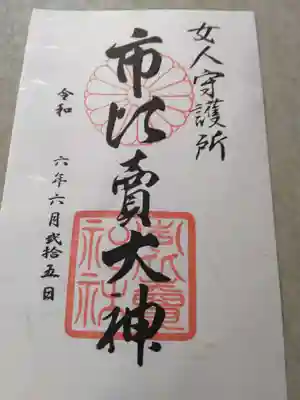 女人守護所
市比賣大神
令和 六年六月弐拾五日